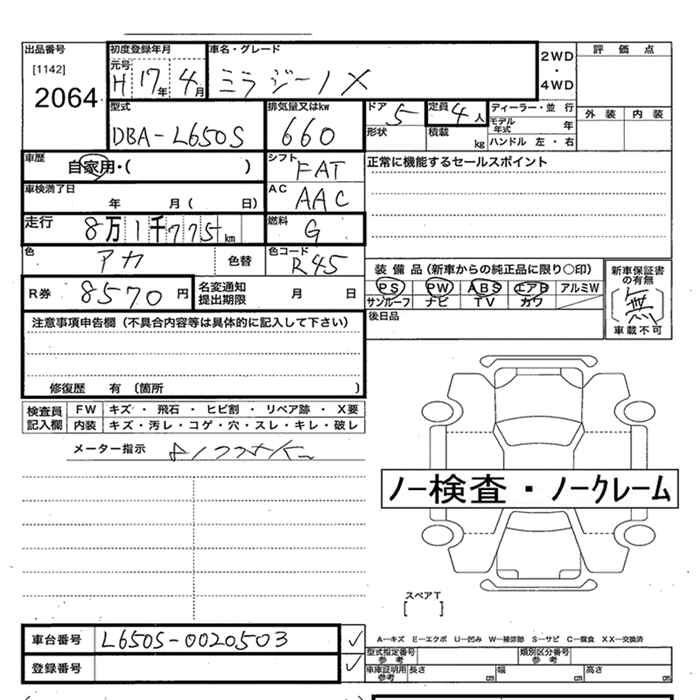 出品番号 初度登録年月 車名・グレード 2WD・4WD 評価点
[1142] 元号
2064 H17年4月 ミラジーノX
型式 排気量又はkw ドア 5 定員 4人 ディーラー・並行 外装 内装
DBA-L650S 660 形状 積載 kg モデル年式 年
ハンドル 左・右
車歴 自家用・( ) シフト FAT 正常に機能するセールスポイント
車検満了日 年 月( 日) AC AAC
走行 8万1千775km 燃料 G
色 アカ 色替 色コード R45
装備品(新車からの純正品に限り○印) 新車保証書の有無
R券 8570円 名変通知提出期限 月 日 PS PW ABS エアB アルミW
サンルーフ ナビ TV カワ 〔無〕
後日品 車載不可
注意事項申告欄(不具合内容等は具体的に記入して下さい)
修復歴 有(箇所 )
検査員記入欄 FW キズ・飛石・ヒビ割・リペア跡・X要
内装 キズ・汚レ・コゲ・穴・スレ・キレ・破レ
メーター指示
ノー検査・ノークレーム
スペアT
[ ]
車台番号 L650S-0020503 ✓
A-キズ E-エクボ U-凹み W-補修跡 S-サビ C-腐食 XX-交換済
型式指定番号 参考 類別区分番号 参考
登録番号 ✓ 車庫証明用 参考 長さ cm 幅 cm 高さ cm